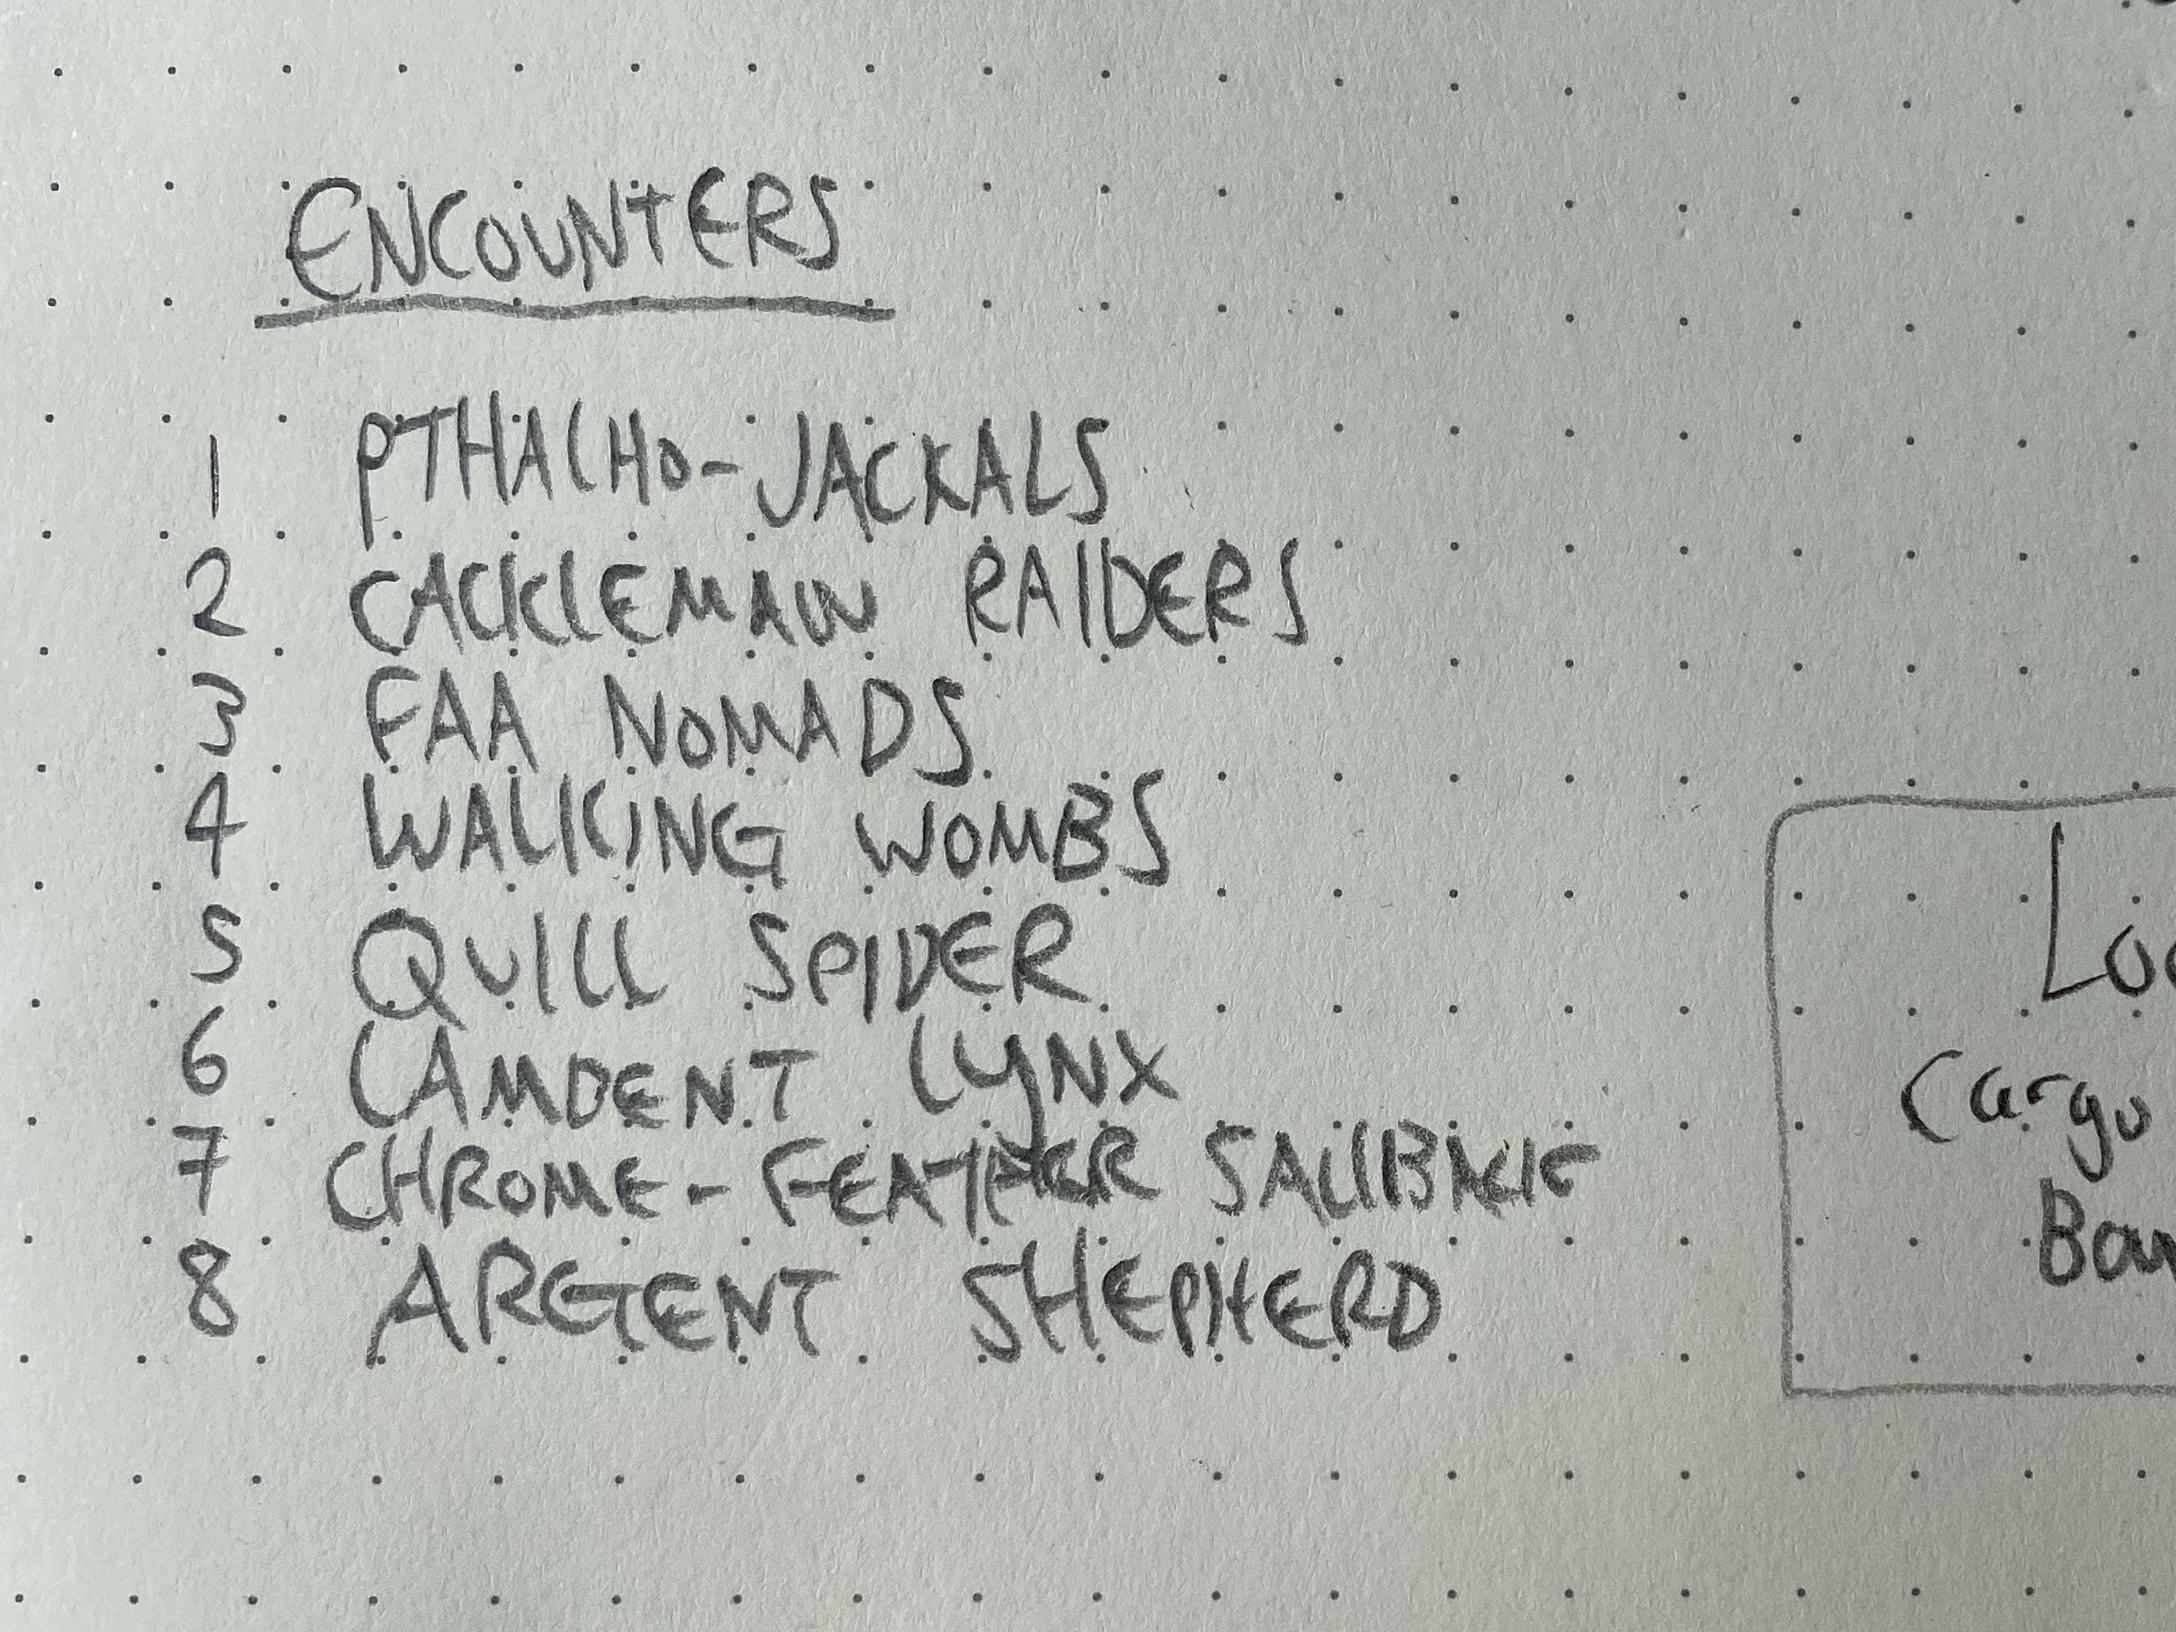 ENCOUNTERS
1 PTHALHO-JACKALS
2 CACKLEMAW RAIDERS
3 FAA NOMADS
4 WALKING WOMBS
5 QUILL SPIDER
6 LAMDENT LYNX
7 CHROME-FEATHER SAILBACK
8 ARGENT SHEPHERD
Cargo